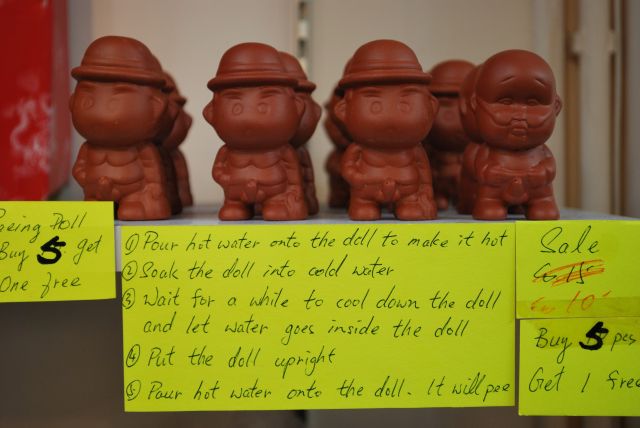 eeing Doll
Buy 5 get
One free
① Pour hot water onto the doll to make it hot
② Soak the doll into cold water
③ Wait for a while to cool down the doll
and let water goes inside the doll
④ Put the doll upright
⑤ Pour hot water onto the doll. It will pee
Sale
15
10
Buy 5 pcs
Get 1 free